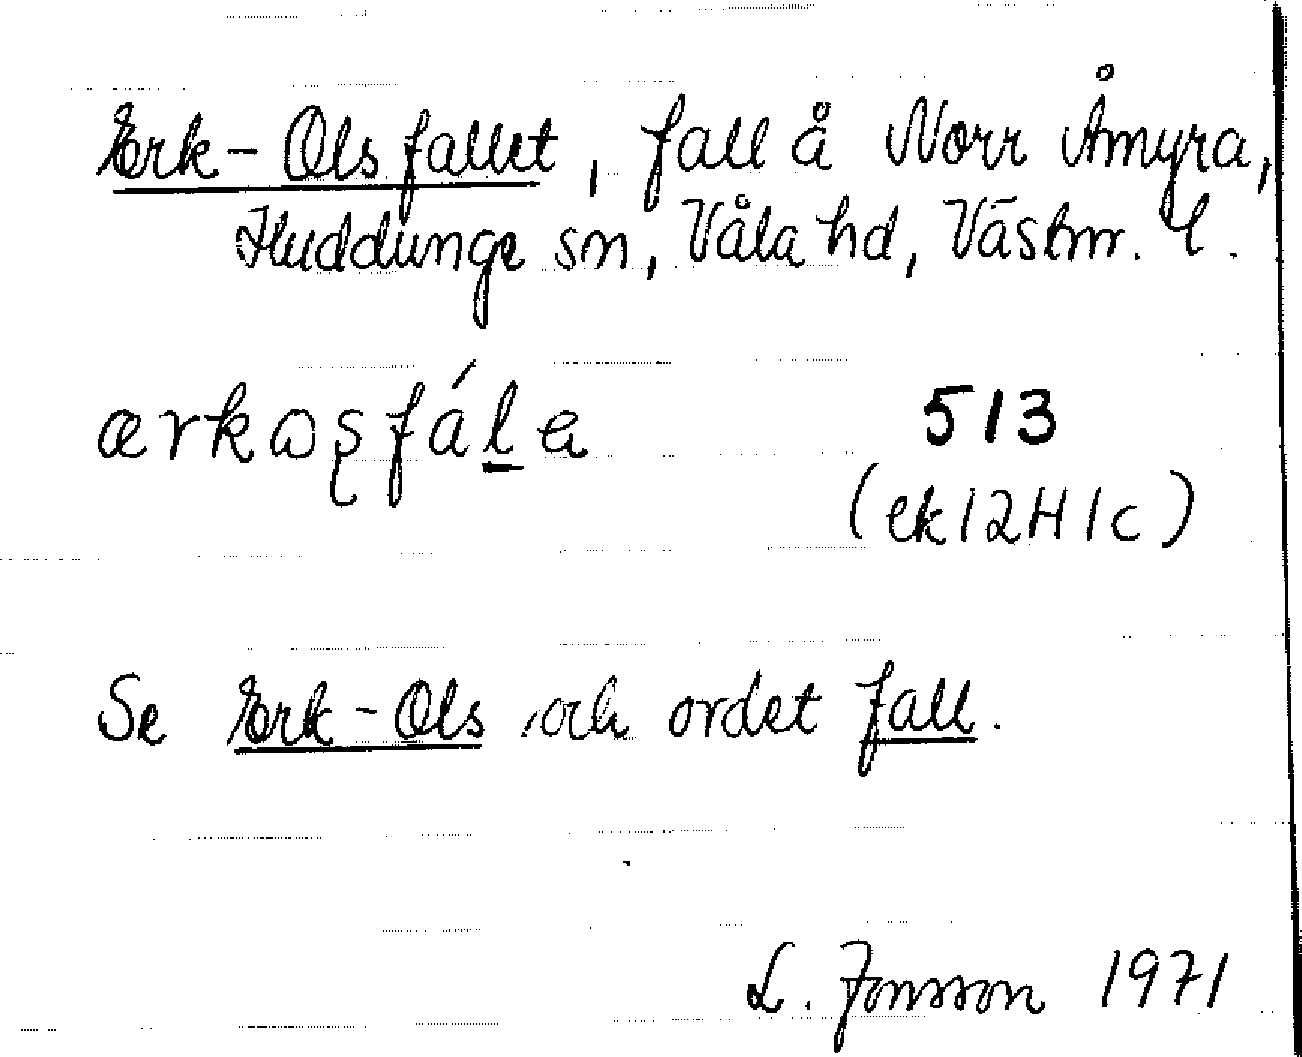 Erk-Olsfallet, fall å Norr Åmyra,
Huddunge sn, Våla hd, Västm. l.
513
(ek 12H1c)
Se Erk-Ols och ordet fall.
L. Jonsson 1971